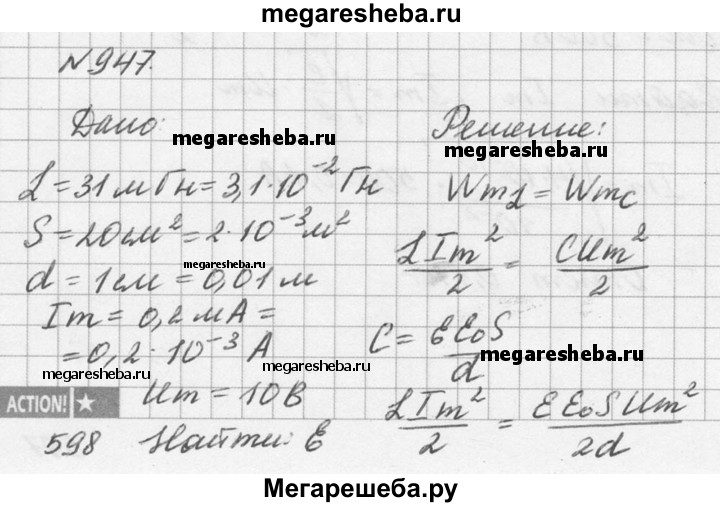 megaresheba.ru
№947.
Дано:
megaresheba.ru
L = 31 мГн = 3,1·10⁻² Гн
S = 20 см² = 2·10⁻³ м²
megaresheba.ru
d = 1 см = 0,01 м
Im = 0,2 мА =
= 0,2·10⁻³ А
megaresheba.ru
Um = 10 В
ACTION!
598 Найти: E
Решение:
megaresheba.ru
WmL = Wmc
LIm²/2 = CUm²/2
C = EE₀S/d
megaresheba.ru
megaresheba.ru
LIm²/2 = EE₀SUm²/2d
Мегарешеба.ру